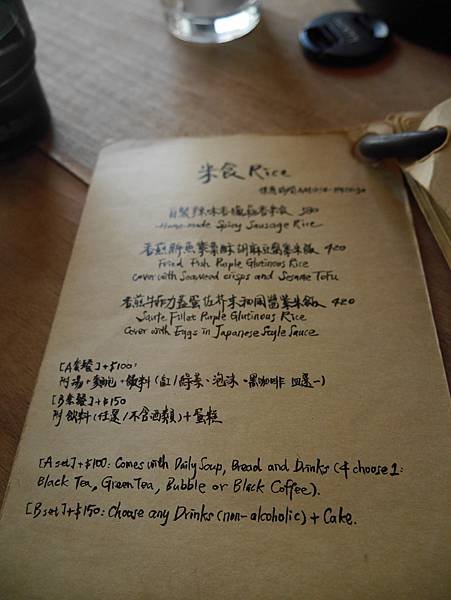 米食 Rice
自製辣味香腸菇香米飯 380
Home-made Spicy Sausage Rice
香煎鮮魚紫菜酥胡麻豆腐紫米飯 420
Fried Fish Purple Glutinous Rice
cover with Seaweed crisps and Sesame Tofu
香煎牛菲力蓋蛋佐芥末和風醬紫米飯 420
Saute Fillet Purple Glutinous Rice
Cover with Eggs in Japanese Style Sauce
[A套餐]+$100:
附湯+麵包+飲料(紅/綠茶、泡沫、黑咖啡 四選一)
[B套餐]+$150
附飲料(任選/不含酒類)+蛋糕
[A set]+$100: Comes with Daily Soup, Bread and Drinks (4 choose 1:
Black Tea, Green Tea, Bubble or Black Coffee).
[B set]+$150: Choose any Drinks (non-alcoholic) + Cake.